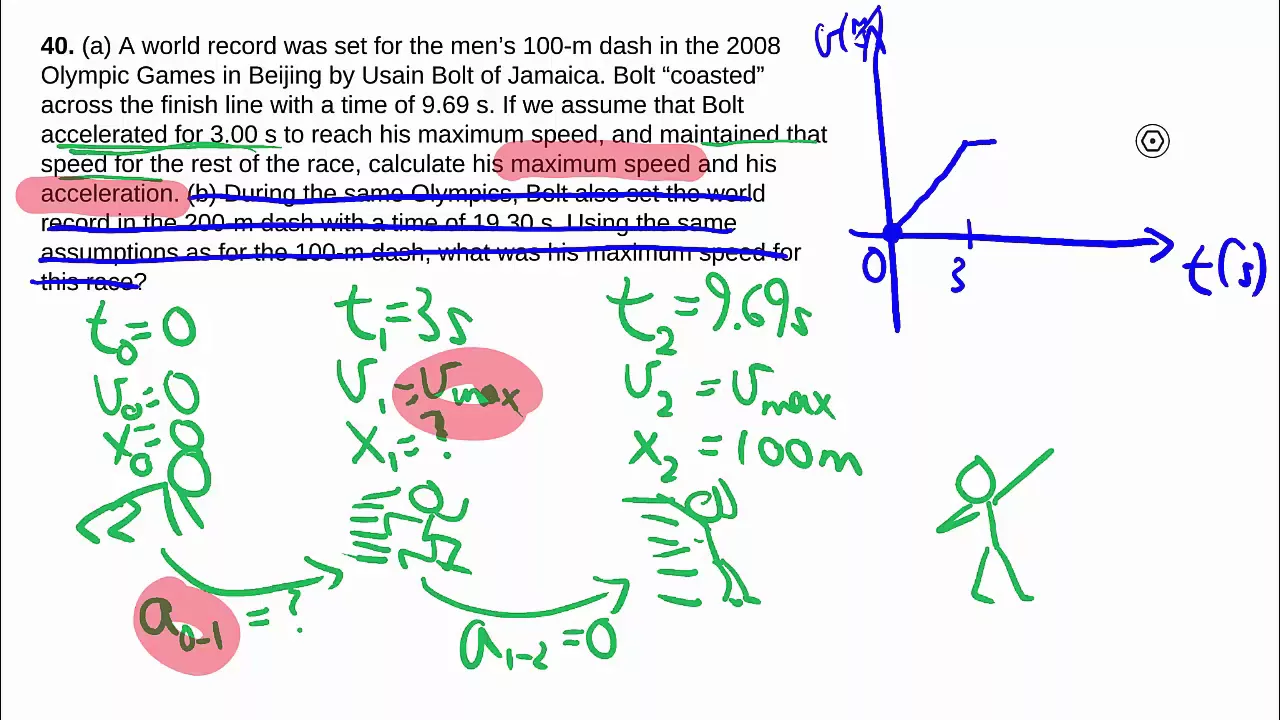 40. (a) A world record was set for the men's 100-m dash in the 2008
Olympic Games in Beijing by Usain Bolt of Jamaica. Bolt “coasted”
across the finish line with a time of 9.69 s. If we assume that Bolt
accelerated for 3.00 s to reach his maximum speed, and maintained that
speed for the rest of the race, calculate his maximum speed and his
acceleration. (b) During the same Olympics, Bolt also set the world
record in the 200-m dash with a time of 19.30 s. Using the same
assumptions as for the 100-m dash, what was his maximum speed for
this race?
v(m/s)
0
3
t(s)
t₀=0
v₀=0
x₀=0
t₁=3s
v₁=vmax
x₁=?
t₂=9.69s
v₂=vmax
x₂=100m
a₀₋₁=?
a₁₋₂=0